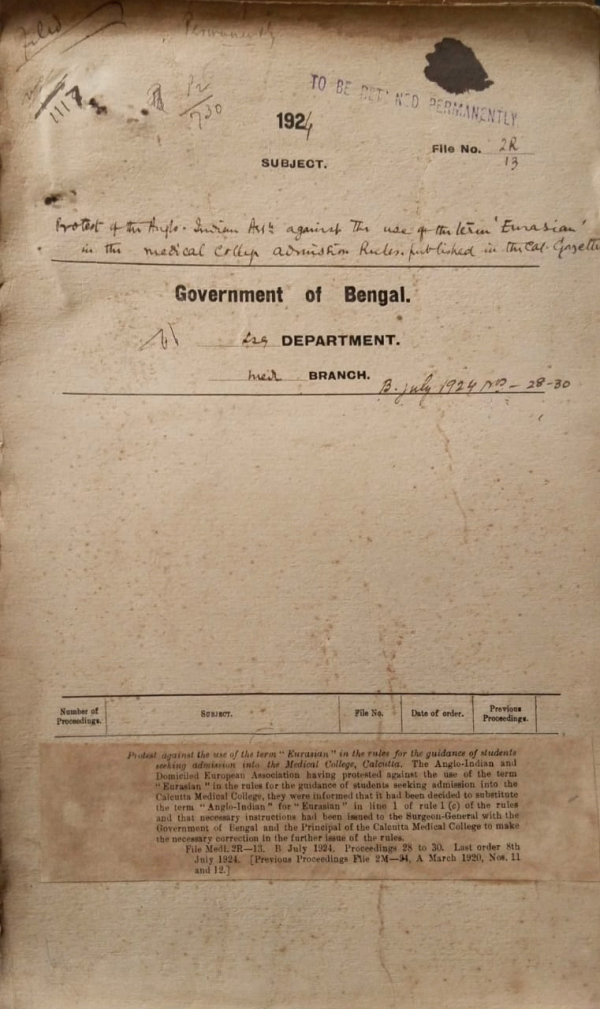 Filed
Permanently
1117
12
730
TO BE RETAINED PERMANENTLY
1924
File No. 2R
13
SUBJECT.
Protest of the Anglo-Indian Assn. against the use of the term 'Eurasian'
in the medical College admission Rules published in the Cal. Gazette
Government of Bengal.
DEPARTMENT.
Med BRANCH.
B. July 1924 Nos - 28-30
Number of Proceedings.
SUBJECT.
File No.
Date of order.
Previous Proceedings.
Protest against the use of the term "Eurasian" in the rules for the guidance of students
seeking admission into the Medical College, Calcutta. The Anglo-Indian and
Domiciled European Association having protested against the use of the term
"Eurasian" in the rules for the guidance of students seeking admission into the
Calcutta Medical College, they were informed that it had been decided to substitute
the term "Anglo-Indian" for "Eurasian" in line 1 of rule 1 (c) of the rules
and that necessary instructions had been issued to the Surgeon-General with the
Government of Bengal and the Principal of the Calcutta Medical College to make
the necessary correction in the further issue of the rules.
File Medl. 2R—13. B July 1924. Proceedings 28 to 30. Last order 8th
July 1924. [Previous Proceedings File 2M—94, A March 1920, Nos. 11
and 12.]